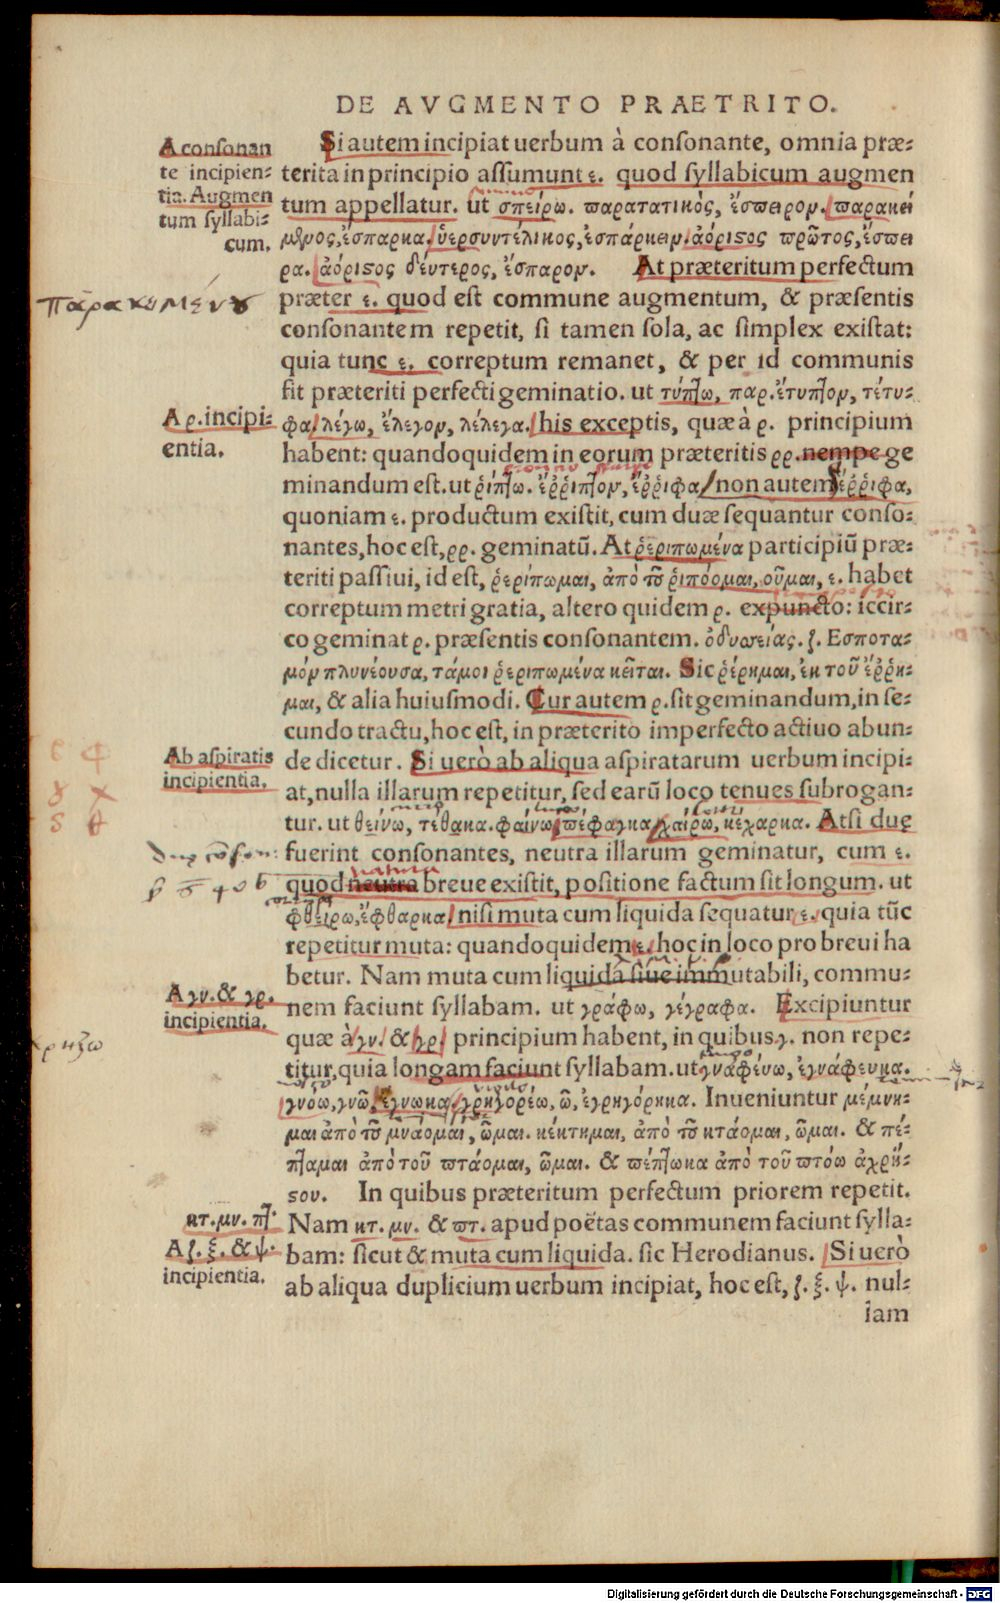 DE AVGMENTO PRAETRITO.
A consonan
te incipien-
tia. Augmen
tum syllabi-
cum.
Si autem incipiat uerbum à consonante, omnia præ-
terita in principio assumunt ε. quod syllabicum augmen
tum appellatur. ut σπείρω. παρατατικὸς, ἔσπειρον. παρακεί
μενος, ἔσπαρκα. ὑερσυντέλικος, ἐσπάρκειν. ἀόριστος πρῶτος, ἔσπει
ρα. ἀόριστος δέυτερος, ἔσπαρον. At præteritum perfectum
παρακειμένου
præter ε. quod est commune augmentum, & præsentis
consonantem repetit, si tamen sola, ac simplex existat:
quia tunc ε. correptum remanet, & per id communis
fit præteriti perfecti geminatio. ut τύπτω, παρ. ἔτυπτον, τέτυ-
A ρ. incipi-
entia.
φα, λέγω, ἔλεγον, λέλεγα. his exceptis, quæ à ρ. principium
habent: quandoquidem in eorum præteritis ρρ. nempe ge
minandum est. ut ῥίπτω. ἔῤῥιπτον, ἔῤῥιφα, non autem ῥέῤῥιφα,
quoniam ε. productum existit, cum duæ sequantur conso-
nantes, hoc est, ρρ. geminatū. At ῥεριπωμένα participiū præ-
teriti passiui, id est, ῥερίπωμαι, ἀπὸ τοῦ ῥιπόομαι, οῦμαι, ε. habet
correptum metri gratia, altero quidem ρ. expuncto: iccir-
co geminat ρ. præsentis consonantem. ὀδυσσείας. ζ. Εσποτα-
μὸν πλυνέουσα, τάμοι ῥεριπωμένα κεῖται. Sic ῥέρημαι, ἐκ τοῦ ἔῤῥη-
μαι, & alia huiusmodi. Cur autem ρ. sit geminandum, in se-
cundo tractu, hoc est, in præterito imperfecto actiuo abun-
Ab aspiratis
incipientia.
de dicetur. Si uerò ab aliqua aspiratarum uerbum incipi-
at, nulla illarum repetitur, sed earū loco tenues subrogan-
tur. ut θείνω, τέθακα. φαίνω, πέφαγκα, χαίρω, κέχαρκα. At si duę
fuerint consonantes, neutra illarum geminatur, cum ε.
natura
quod neutra breue existit, positione factum sit longum. ut
φθείρω, ἔφθαρκα, nisi muta cum liquida sequatur ε. quia tūc
repetitur muta: quandoquidem ε. hoc in loco pro breui ha
betur. Nam muta cum liquida siue immutabili, commu-
A γν. & γρ.
incipientia.
nem faciunt syllabam. ut γράφω, γέγραφα. Excipiuntur
quæ à γν. & γρ. principium habent, in quibus γ. non repe-
titur, quia longam faciunt syllabam. ut γναφένω, ἐγνάφευκα.
γνόω, γνῶ, ἔγνωκα. γρηγορέω, ῶ, ἐγρηγόρηκα. Inueniuntur μέμνη-
μαι ἀπὸ τοῦ μνάομαι, ῶμαι. κέκτημαι, ἀπὸ τοῦ κτάομαι, ῶμαι. & πέ-
πταμαι ἀπὸ τοῦ πτάομαι, ῶμαι. & πέπτωκα ἀπὸ τοῦ πτόω ἀχρή-
στου. In quibus præteritum perfectum priorem repetit.
κτ. μν. πτ.
Nam κτ. μν. & πτ. apud poëtas communem faciunt sylla-
A ζ. ξ. & ψ.
incipientia.
bam: sicut & muta cum liquida. sic Herodianus. Si uerò
ab aliqua duplicium uerbum incipiat, hoc est, ζ. ξ. ψ. nul-
lam
Digitalisierung gefördert durch die Deutsche Forschungsgemeinschaft - DFG